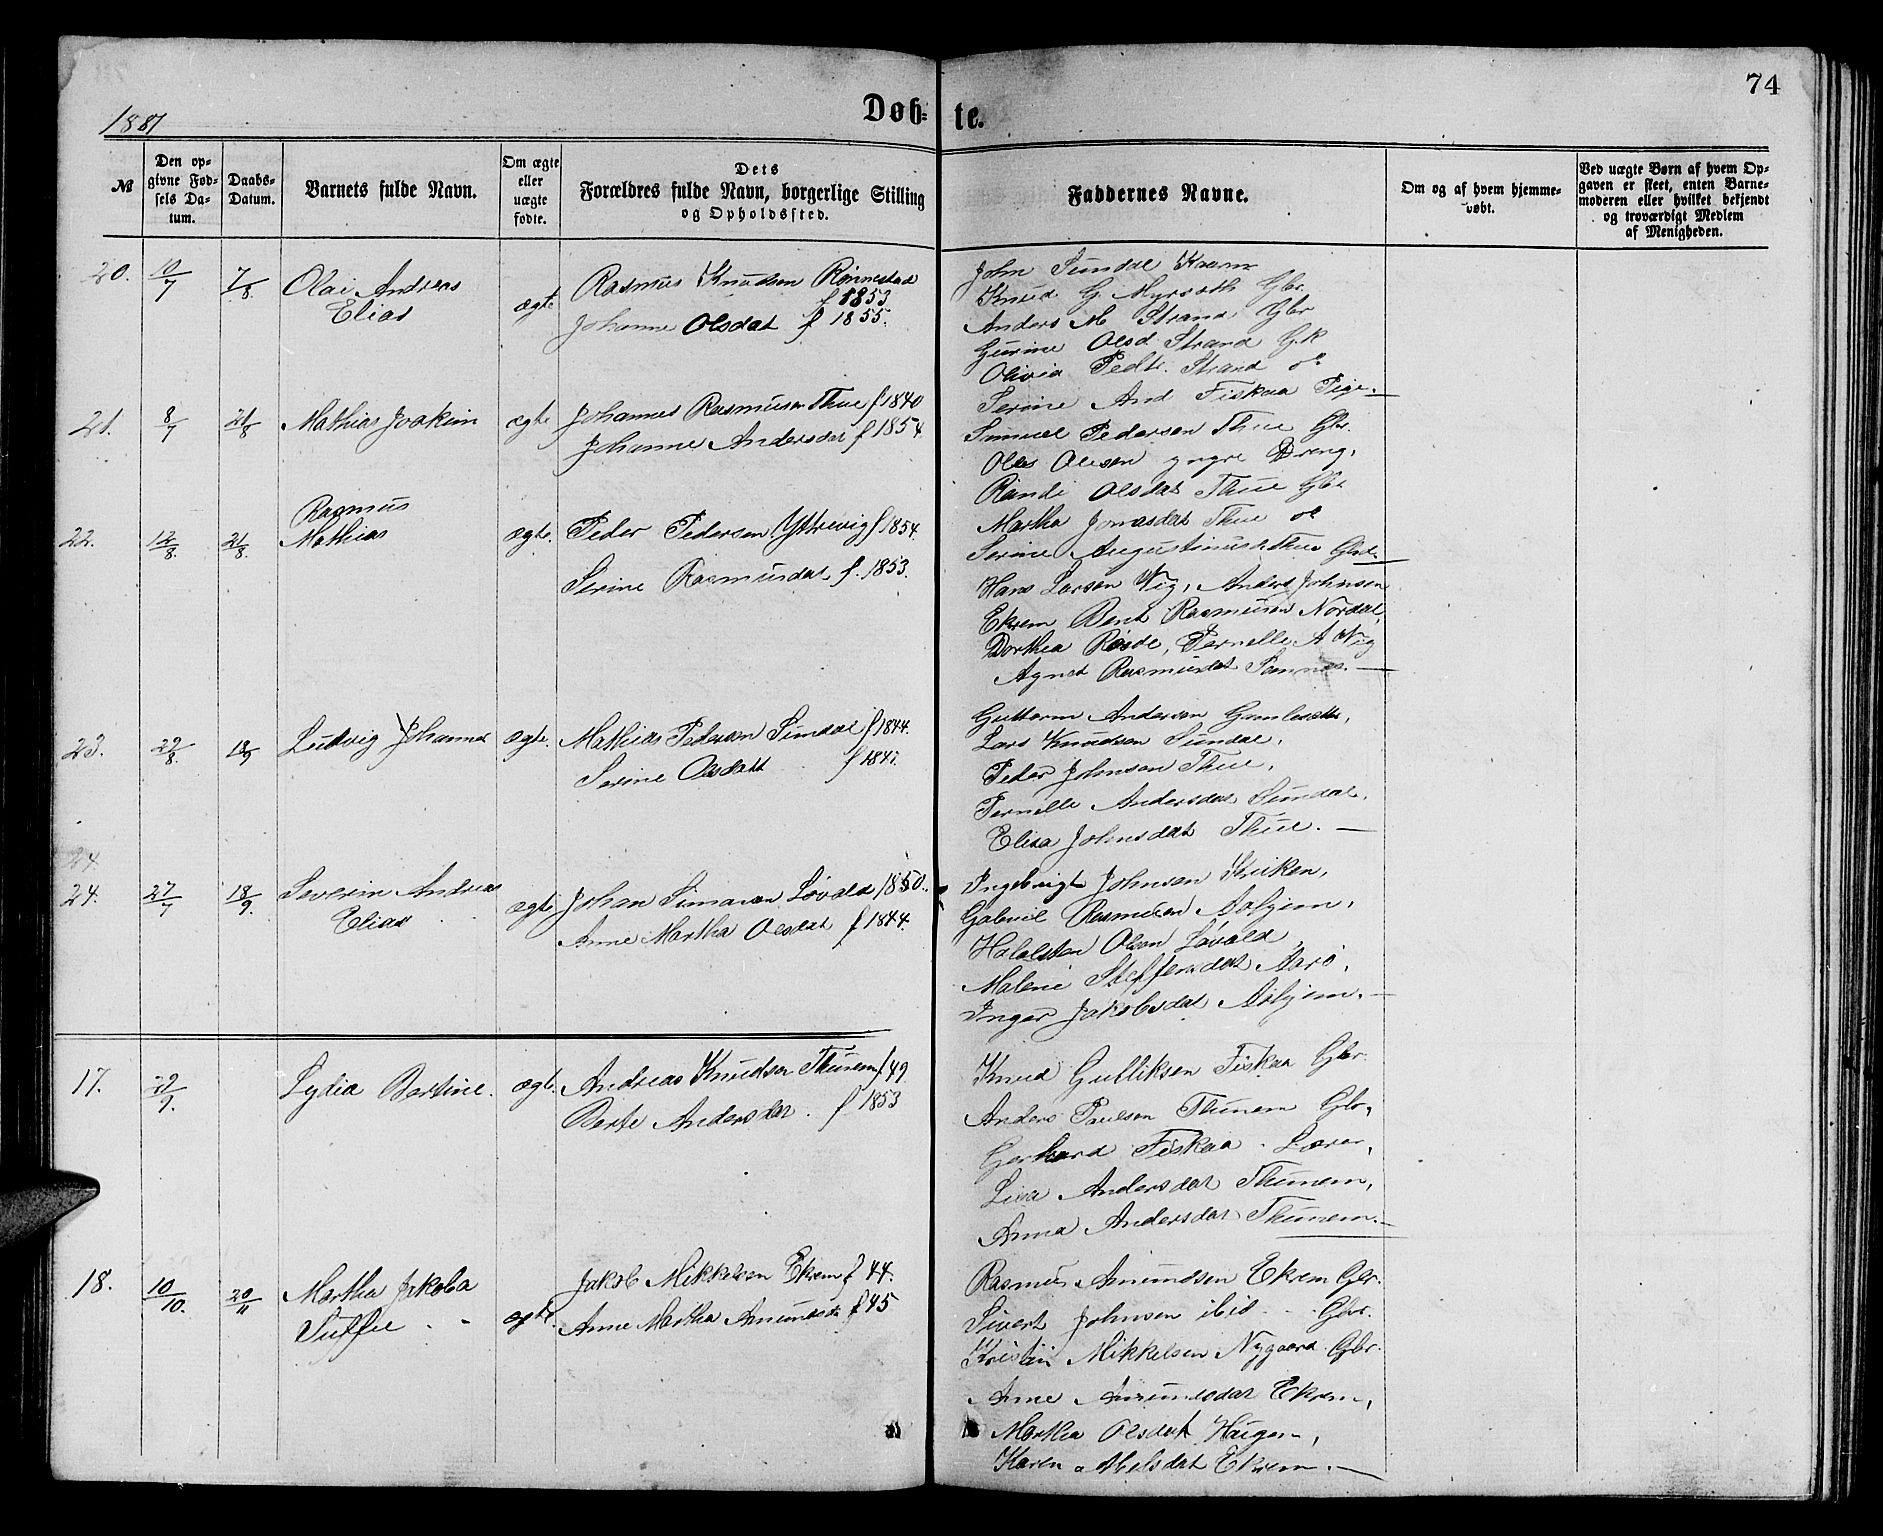 74
1881
Døb-
te.
№
Den op-
givne Fød-
sels Da-
tum.
Daabs-
Datum.
Barnets fulde Navn.
Om ægte
eller
uægte
fødte.
Dets
Forældres fulde Navn, borgerlige Stilling
og Opholdssted.
Faddernes Navne.
Om og af hvem hjemme-
døbt.
Ved uægte Børn af hvem Op-
gaven er skeet, enten Barne-
moderen eller hvilket bekjendt
og troværdigt Medlem
af Menigheden.
20. 10/7 7/8 Olai Andreas
Elias
ægte
Rasmus Knudsen Rønnestad
f 1853
Johanne Olsdat f 1855.
John Sundal
Knud G. Myrsæth Gbr.
Anders M Strand Gbr
Gurine Olsd Strand Gk
Olivia Pedt. Strand
Serine And Fiskaa Pige
21. 8/7 21/8 Mathias Joakim ægte Johannes Rasmusen Thue f 1840
Johanne Andersdat f 1854
Samuel Pedersen Thue Gbr.
Olesen yngre Dreng,
Randi Olsdat Thue
Martha Jonasdat Thue
Serine Thue
22. 12/8 21/8 Rasmus
Mathias ægte. Peder Pedersen Yttrevig f 1854.
Serine Rasmusdat f. 1853.
Hans Larsen Vig, Anders Johnsen
Ekrem Bent Rasmusen Nordal,
Dorthea Pernelle A Vig
Agnet Rasmusdat
23. 29/8 18/9 Ludvig Johannes ægte. Mathias Pedersen Sundal f 1844.
Serine Olsdatt
Guttorm Andersen
Lars Knudsen Sundal,
Peder Johnsen Thue,
Pernelle Andersdat Sundal,
Elisa Johnsdat Thue.
24
24. 27/7 18/9. Severin Andreas
Elias ægte Johan Simonsen Løvold 1850.
Anne Martha Olsdat f 1844.
Ingebrigt Johnsen
Gabriel Rasmusen Aahjem,
Olsen Løvold,
Malene Steffensdat Aarø,
Inger Jakobsdat Aahjem.
17. 29/9. Lydia Bertine. ægte. Andreas Knudsen Thunem f 49
Berte Andersdat. f 1853
Knud Gulliksen Fiskaa Gbr.
Anders Paulsen Thunem Gbr,
Gerhard Fiskaa. Lærer,
Lisa Andersdat Thunem,
Anna Andersdat Thunem.
18. 10/10. 20/11 Martha Jakoba
ægte. Jakob Mikkelsen Ekrem f 44.
Anne Martha Amundsd f 45
Rasmus Amundsen Ekrem Gbr.
Sivert Johnsen ibid - Gbr.
Kristen Mikkelsen Nygaard Gbr.
Anne Amundsdat Ekrem,
Martha Olsdat Haugen,
Karen Abelsdat Ekrem.